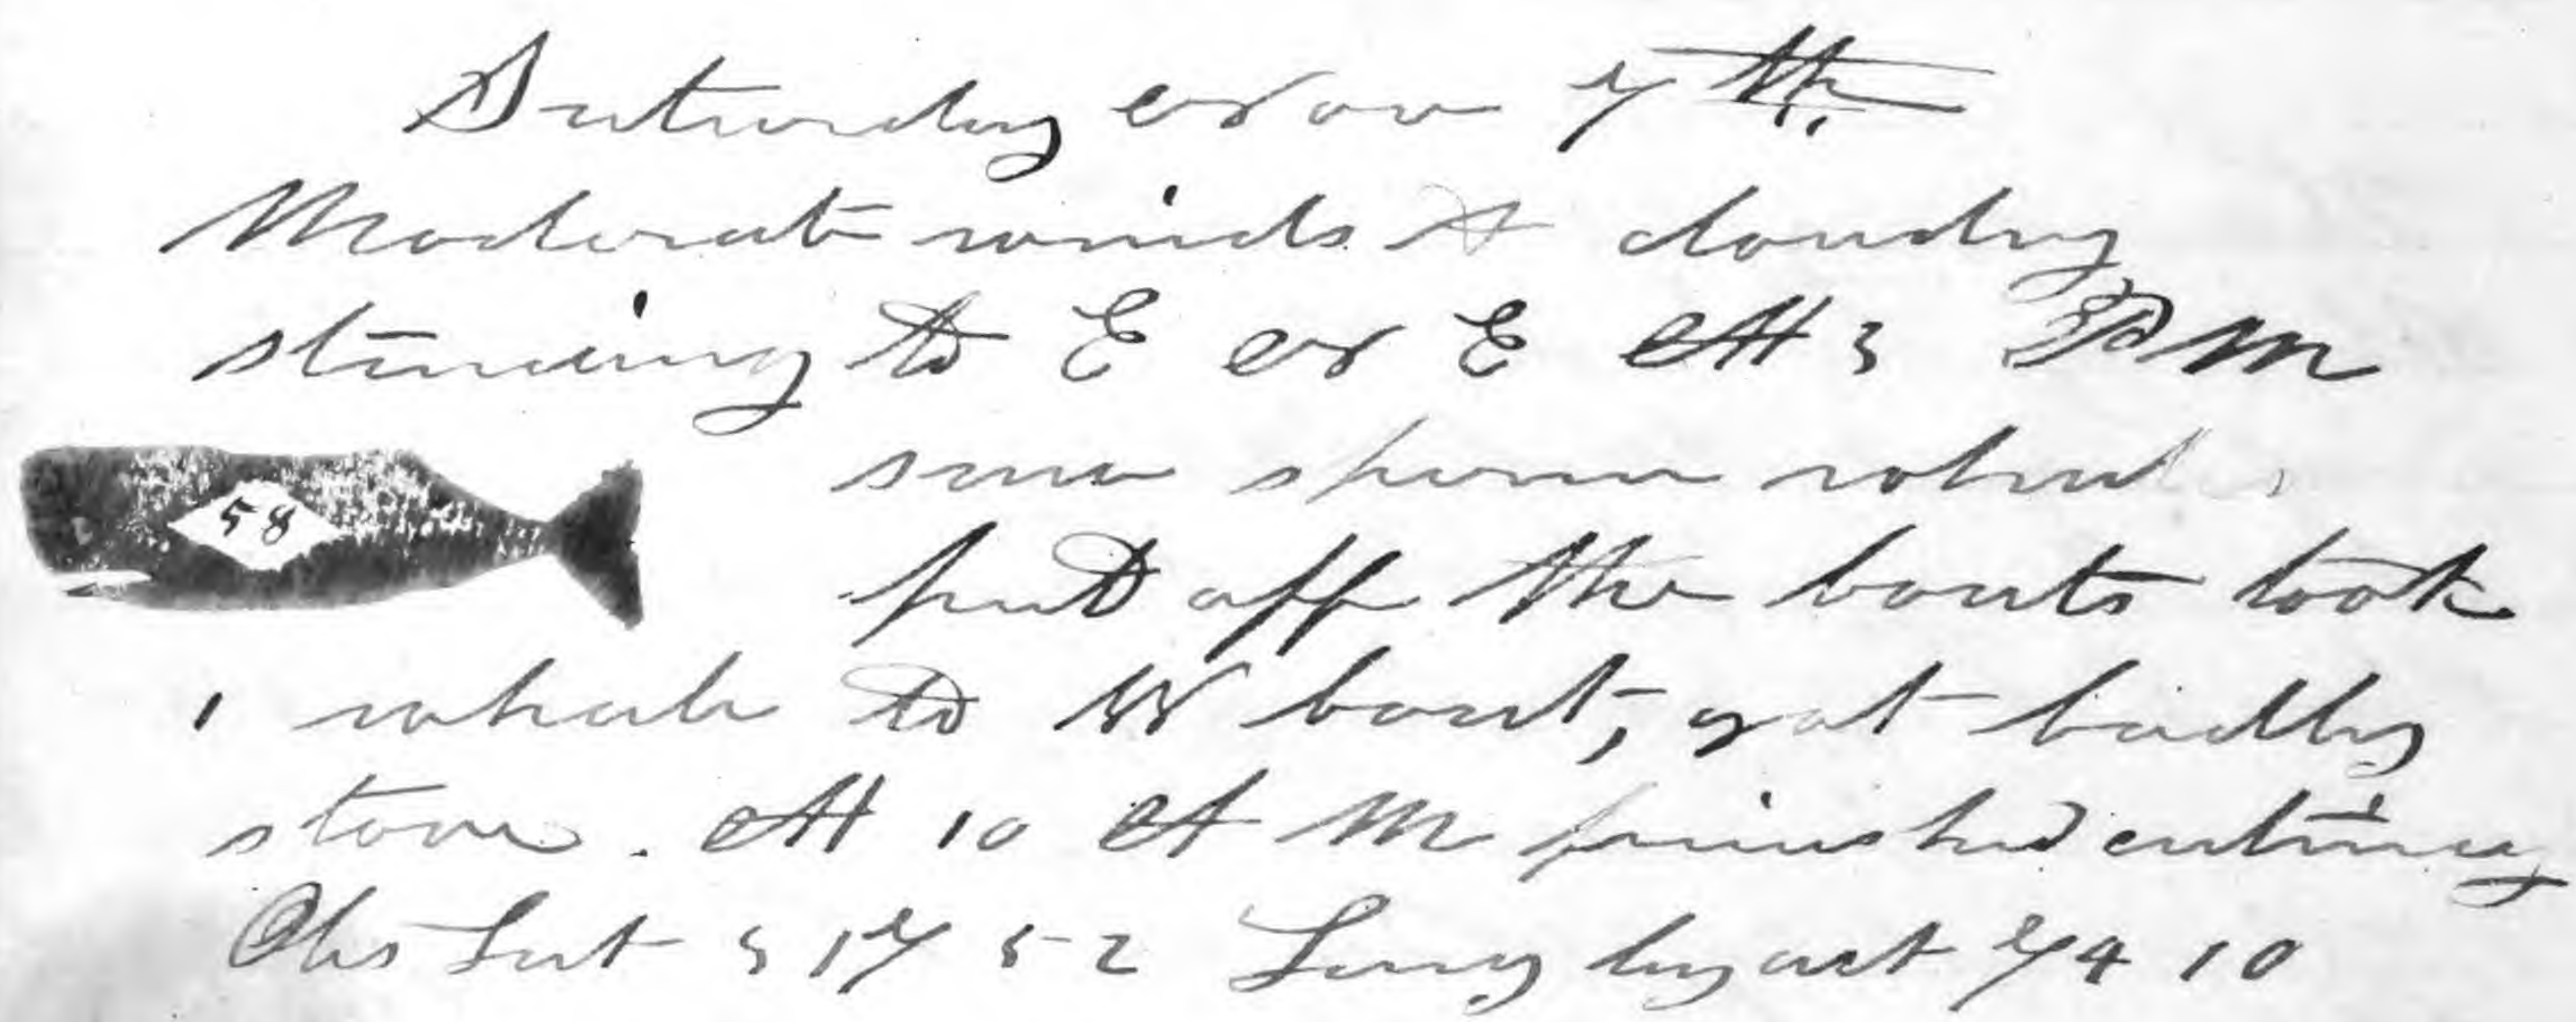 Saturday Nov 7th,
Moderate winds & cloudy
standing to E N E At 3 PM
saw sperm whales
58
put off the boats took
1 whale to W boat, got badly
stove. At 10 A M finished cutting
Obs Lat 3 17 52 Long by act 74 10